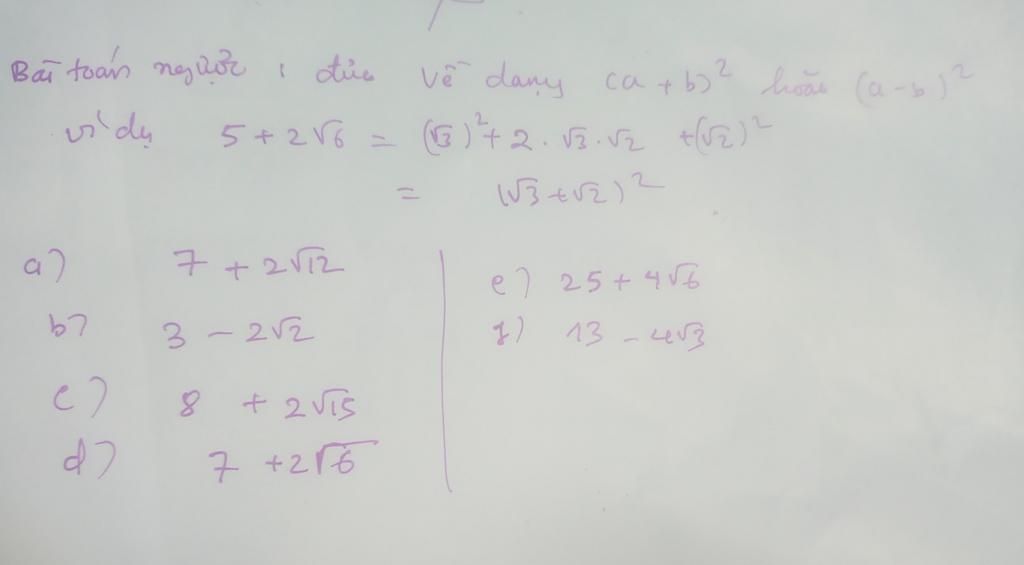 Bài toán ngược : đưa về dạng (a + b)² hoặc (a - b)²
ví dụ 5 + 2√6 = (√3)² + 2 . √3 . √2 + (√2)²
= (√3 + √2)²
a) 7 + 2√12
b) 3 - 2√2
c) 8 + 2√15
d) 7 + 2√6
e) 25 + 4√6
f) 13 - 4√3